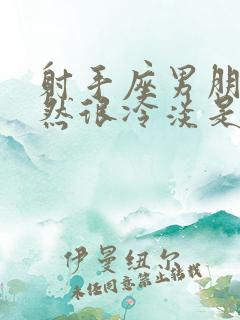 射手座男朋
然很冷淡是
伊曼纽尔
未经同意禁止转载